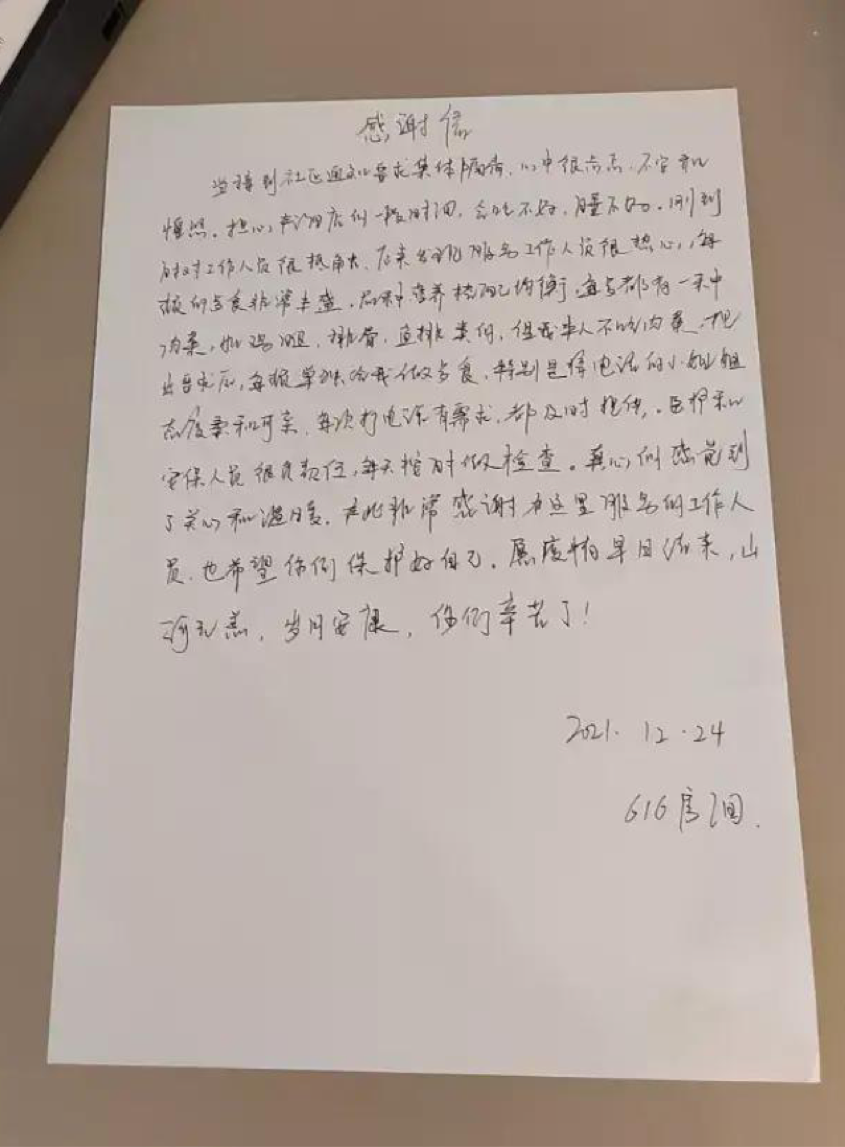 感谢信
当接到社区通知要求集体隔离，心中很忐忑，不安和
惶恐。担心在酒店的一段时间，会吃不好，睡不好。刚到
时对工作人员很抵触，后来发现服务工作人员很热心，每
顿的餐食非常丰盛，品种营养搭配均衡，每餐都有一个
肉菜，如鸡腿，排骨，鱼排类的，但我本人不吃肉菜，把
此要求后，每顿单独给我做餐食，特别是接电话的小姐姐
态度柔和可亲，每次打电话有需求，都及时提供。医护和
安保人员很负责任，每天按时做检查。真心的感觉到
了关心和温暖，在此非常感谢在这里服务的工作人
员，也希望你们保护好自己。愿疫情早日结束，山
河无恙，岁月安康，你们辛苦了！
2021.12.24
616房间.